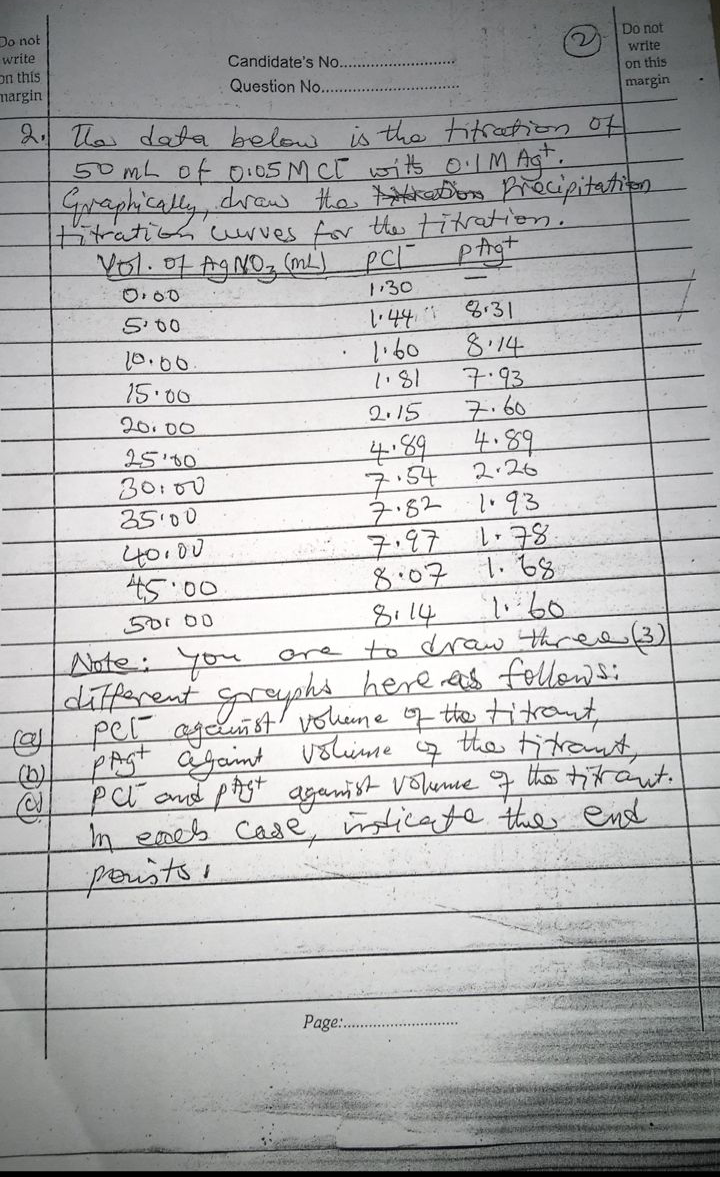 Do not
write
on this
margin
Candidate's No............................
Question No..................................
2
Do not
write
on this
margin
2. The data below is the titration of
50 mL of 0.05 M Cl⁻ with 0.1 M Ag⁺.
Graphically, draw the Precipitation
titration curves for the titration.
Vol. of AgNO₃ (mL) pCl⁻ pAg⁺
0.00 1.30 —
5.00 1.44 8.31
10.00 1.60 8.14
15.00 1.81 7.93
20.00 2.15 7.60
25.00 4.89 4.89
30.00 7.54 2.26
35.00 7.82 1.93
40.00 7.97 1.78
45.00 8.07 1.68
50.00 8.14 1.60
Note: You are to draw three (3)
different graphs here as follows:
(a) pCl⁻ against volume of the titrant,
(b) pAg⁺ against volume of the titrant,
(c) pCl⁻ and pAg⁺ against volume of the titrant.
In each case, indicate the end
points.
Page:............................